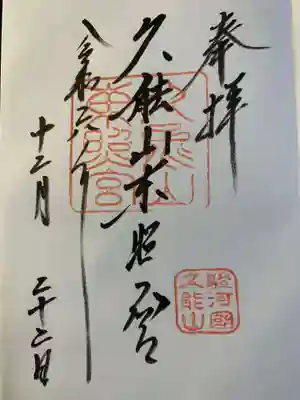 奉拝
駿河國
久能山
久能山東照宮
久能山
東照宮
令和六年
十二月 二十二日